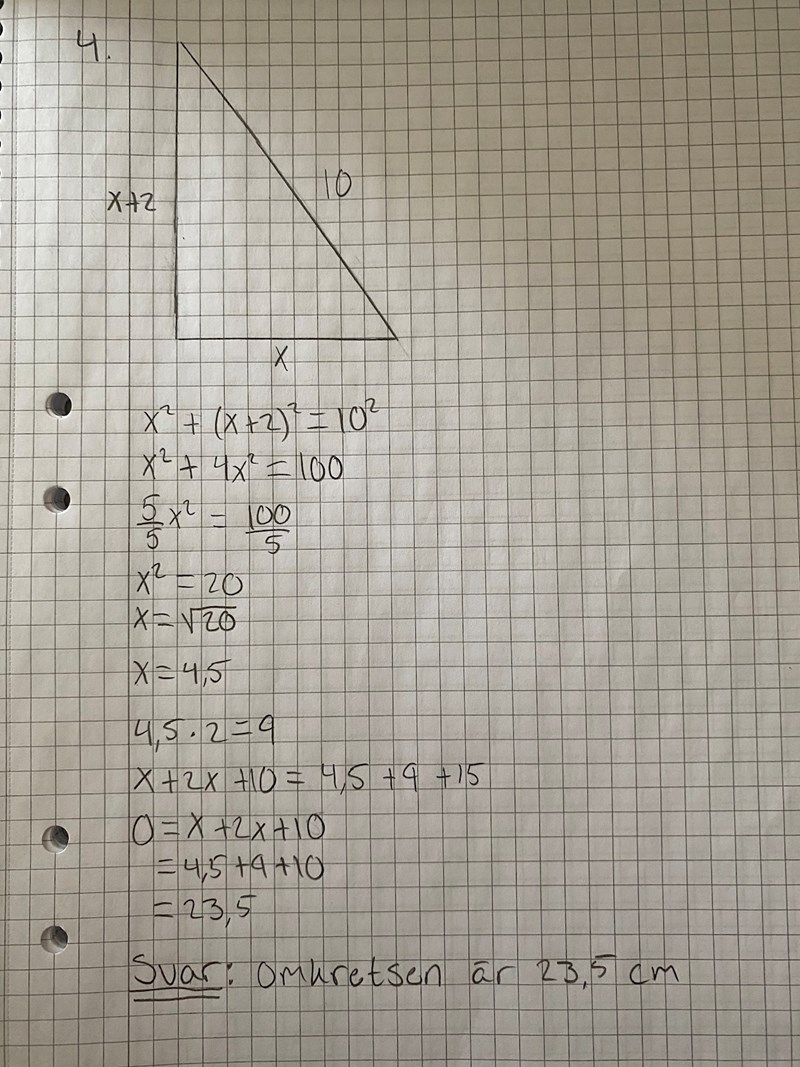 4.
x+2
10
x
x² + (x+2)² = 10²
x² + 4x² = 100
5/5 x² = 100/5
x² = 20
x = √20
x = 4,5
4,5 · 2 = 9
x + 2x + 10 = 4,5 + 9 + 15
O = x + 2x + 10
= 4,5 + 9 + 10
= 23,5
Svar: omkretsen är 23,5 cm